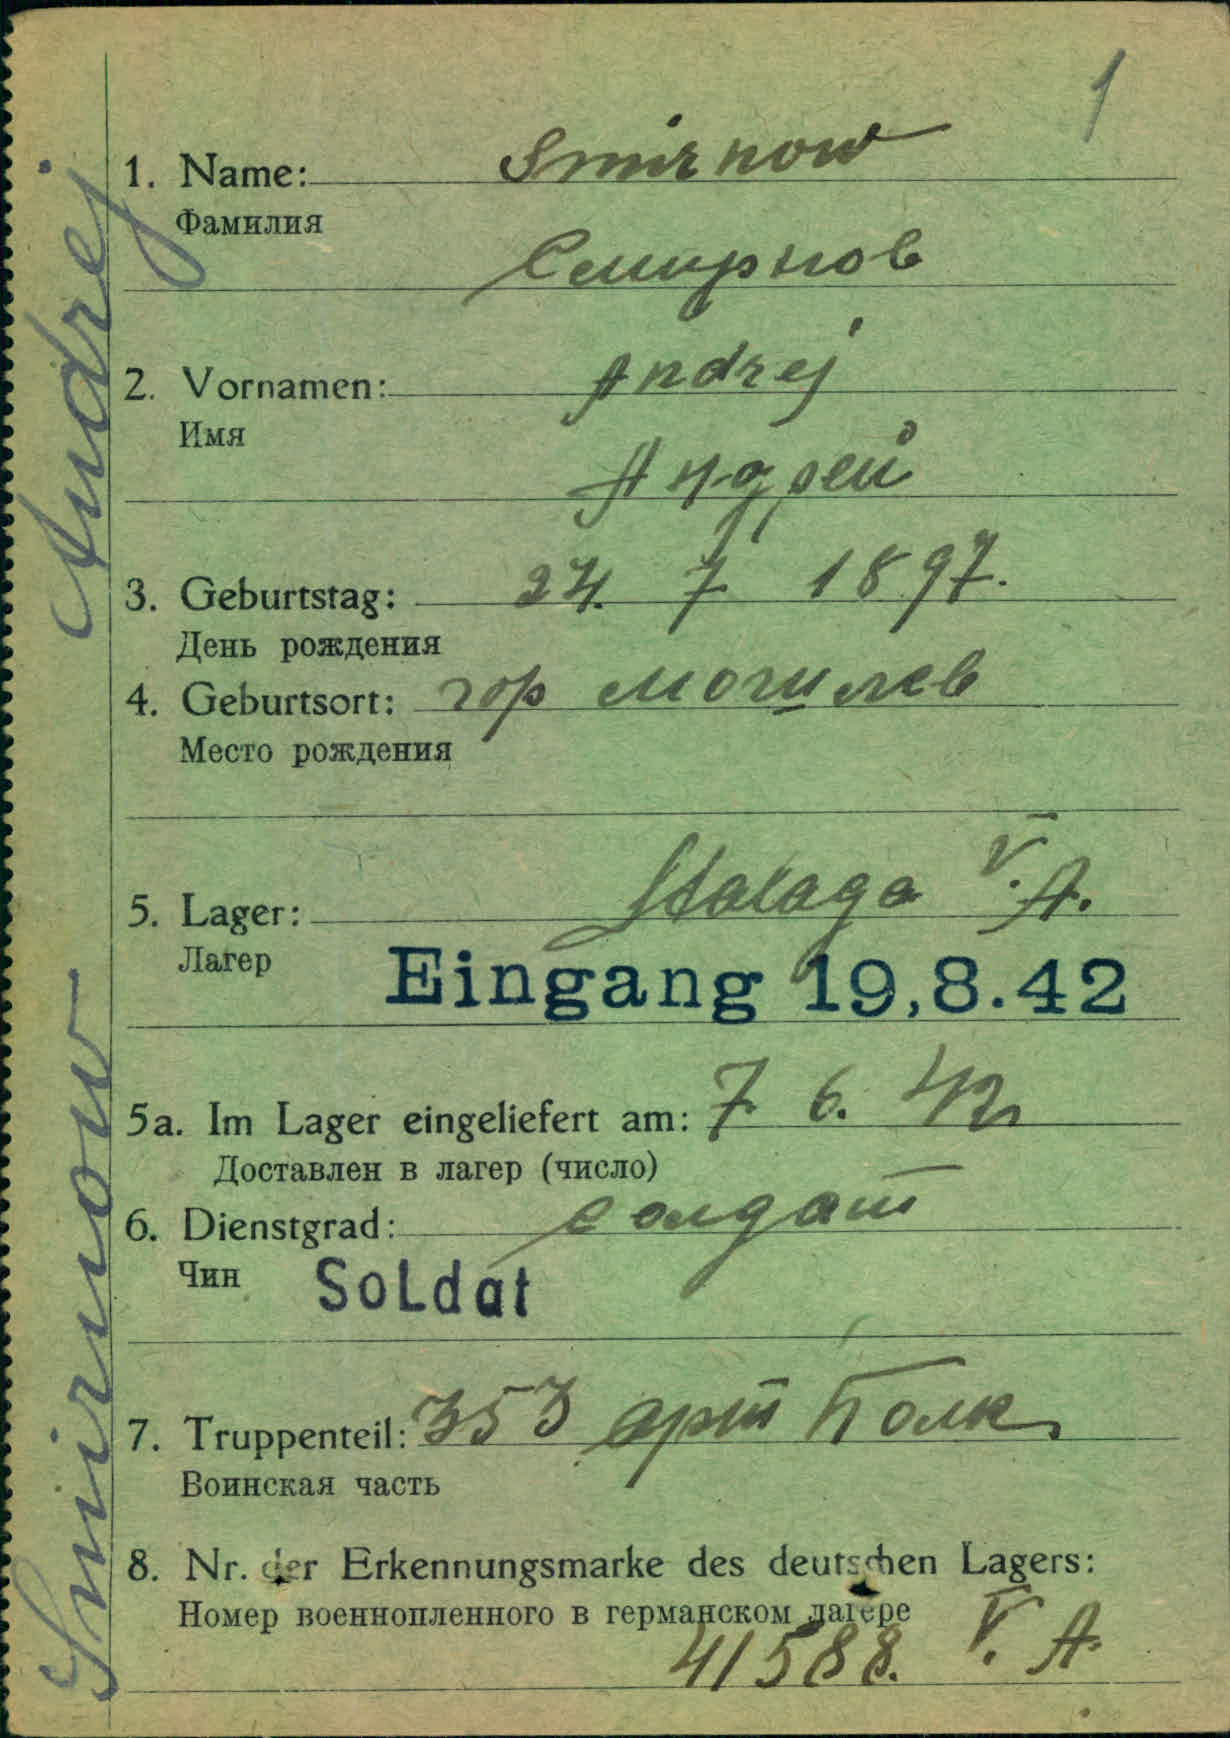 1
1. Name: Smirnow
Фамилия
Смирнов
2. Vornamen: Andrej
Имя
Андрей
3. Geburtstag: 24. 7 1897.
День рождения
4. Geburtsort: гор могилев
Место рождения
5. Lager: Stalaga V. A.
Лагер
Eingang 19,8.42
5a. Im Lager eingeliefert am: 7 6. 42
Доставлен в лагер (число)
6. Dienstgrad: солдат
Чин
Soldat
7. Truppenteil: 353 арт Полк
Воинская часть
8. Nr. der Erkennungsmarke des deutschen Lagers:
Номер военнопленного в германском лагере
41588. V. A.
Smirnow Andrej